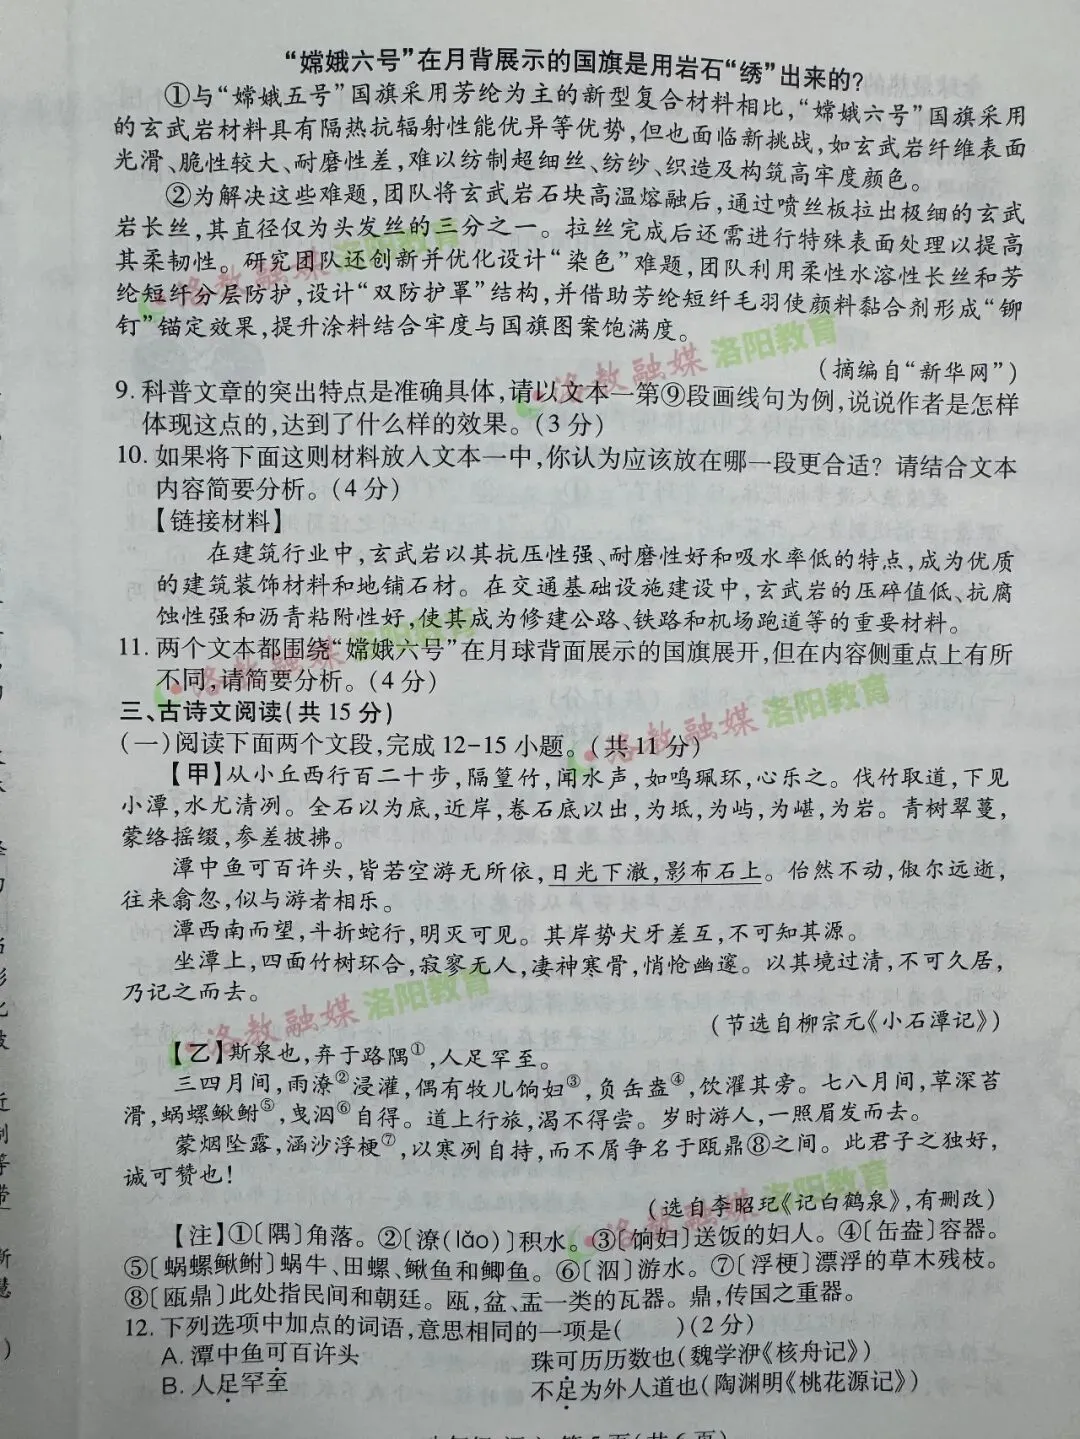 “嫦娥六号”在月背展示的国旗是用岩石“绣”出来的?
①与“嫦娥五号”国旗采用芳纶为主的新型复合材料相比,“嫦娥六号”国旗采用
的玄武岩材料具有隔热抗辐射性能优异等优势,但也面临新挑战,如玄武岩纤维表面
光滑、脆性较大、耐磨性差,难以纺制超细丝、纺纱、织造及构筑高牢度颜色。
②为解决这些难题,团队将玄武岩石块高温熔融后,通过喷丝板拉出极细的玄武
岩长丝,其直径仅为头发丝的三分之一。拉丝完成后还需进行特殊表面处理以提高
其柔韧性。研究团队还创新并优化设计“染色”难题,团队利用柔性水溶性长丝和芳
纶短纤分层防护,设计“双防护罩”结构,并借助芳纶短纤毛羽使颜料黏合剂形成“铆
钉”锚定效果,提升涂料结合牢度与国旗图案饱满度。
(摘编自“新华网”)
9. 科普文章的突出特点是准确具体,请以文本一第⑨段画线句为例,说说作者是怎样
体现这点的,达到了什么样的效果。(3分)
10. 如果将下面这则材料放入文本一中,你认为应该放在哪一段更合适?请结合文本
内容简要分析。(4分)
【链接材料】
在建筑行业中,玄武岩以其抗压性强、耐磨性好和吸水率低的特点,成为优质
的建筑装饰材料和地铺石材。在交通基础设施建设中,玄武岩的压碎值低、抗腐
蚀性强和沥青粘附性好,使其成为修建公路、铁路和机场跑道等的重要材料。
11. 两个文本都围绕“嫦娥六号”在月球背面展示的国旗展开,但在内容侧重点上有所
不同,请简要分析。(4分)
三、古诗文阅读(共15分)
(一)阅读下面两个文段,完成12-15小题。(共11分)
【甲】从小丘西行百二十步,隔篁竹,闻水声,如鸣珮环,心乐之。伐竹取道,下见
小潭,水尤清冽。全石以为底,近岸,卷石底以出,为坻,为屿,为嵁,为岩。青树翠蔓,
蒙络摇缀,参差披拂。
潭中鱼可百许头,皆若空游无所依,日光下澈,影布石上。佁然不动,俶尔远逝,
往来翕忽,似与游者相乐。
潭西南而望,斗折蛇行,明灭可见。其岸势犬牙差互,不可知其源。
坐潭上,四面竹树环合,寂寥无人,凄神寒骨,悄怆幽邃。以其境过清,不可久居,
乃记之而去。
(节选自柳宗元《小石潭记》)
【乙】斯泉也,弃于路隅①,人足罕至。
三四月间,雨潦②浸灌,偶有牧儿饷妇③,负缶盎④,饮濯其旁。七八月间,草深苔
滑,蜗螺鳅鲋⑤,曳泅⑥自得。道上行旅,渴不得尝。岁时游人,一照眉发而去。
蒙烟坠露,涵沙浮梗⑦,以寒冽自持,而不屑争名于瓯鼎⑧之间。此君子之独好,
诚可赞也!
(选自李昭玘《记白鹤泉》,有删改)
【注】①〔隅〕角落。②〔潦(lǎo)〕积水。③〔饷妇〕送饭的妇人。④〔缶盎〕容器。
⑤〔蜗螺鳅鲋〕蜗牛、田螺、鳅鱼和鲫鱼。⑥〔泅〕游水。⑦〔浮梗〕漂浮的草木残枝。
⑧〔瓯鼎〕此处指民间和朝廷。瓯,盆、盂一类的瓦器。鼎,传国之重器。
12. 下列选项中加点的词语,意思相同的一项是(　　)(2分)
A. 潭中鱼可百许头　　珠可历历数也(魏学洢《核舟记》)
B. 人足罕至　　不足为外人道也(陶渊明《桃花源记》)
洛教融媒 洛阳教育
洛教融媒 洛阳教育
洛教融媒 洛阳教育
洛教融媒 洛阳教育
洛教融媒 洛阳教育
洛教融媒 洛阳教育